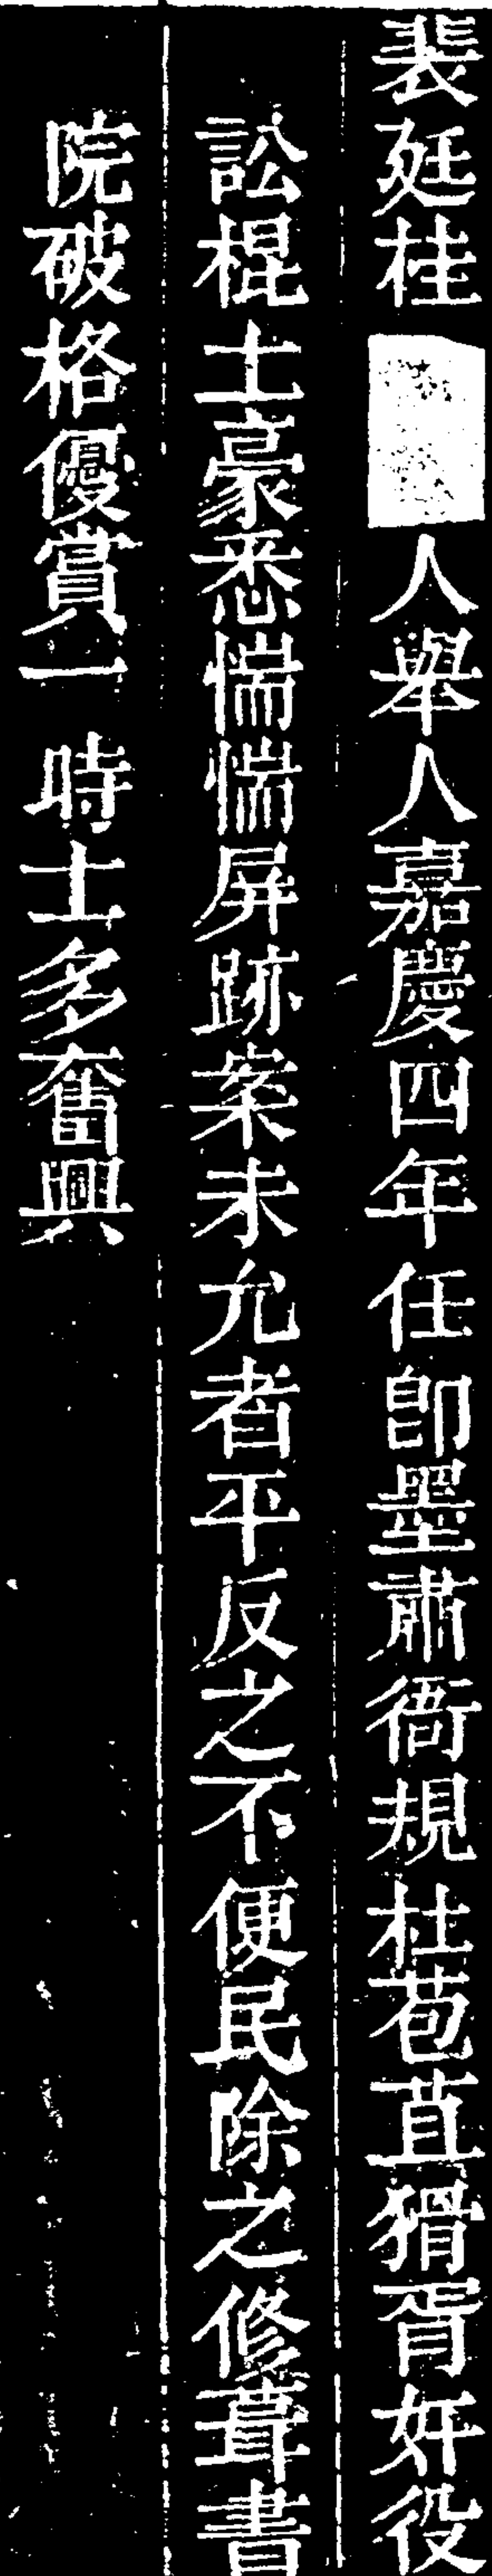 裴廷桂人舉人嘉慶四年任卽墨肅衙規杜苞苴猾胥奸役
訟棍土豪悉惴惴屏跡案未允者平反之不便民除之修葺書
院破格優賞一時士多奮興